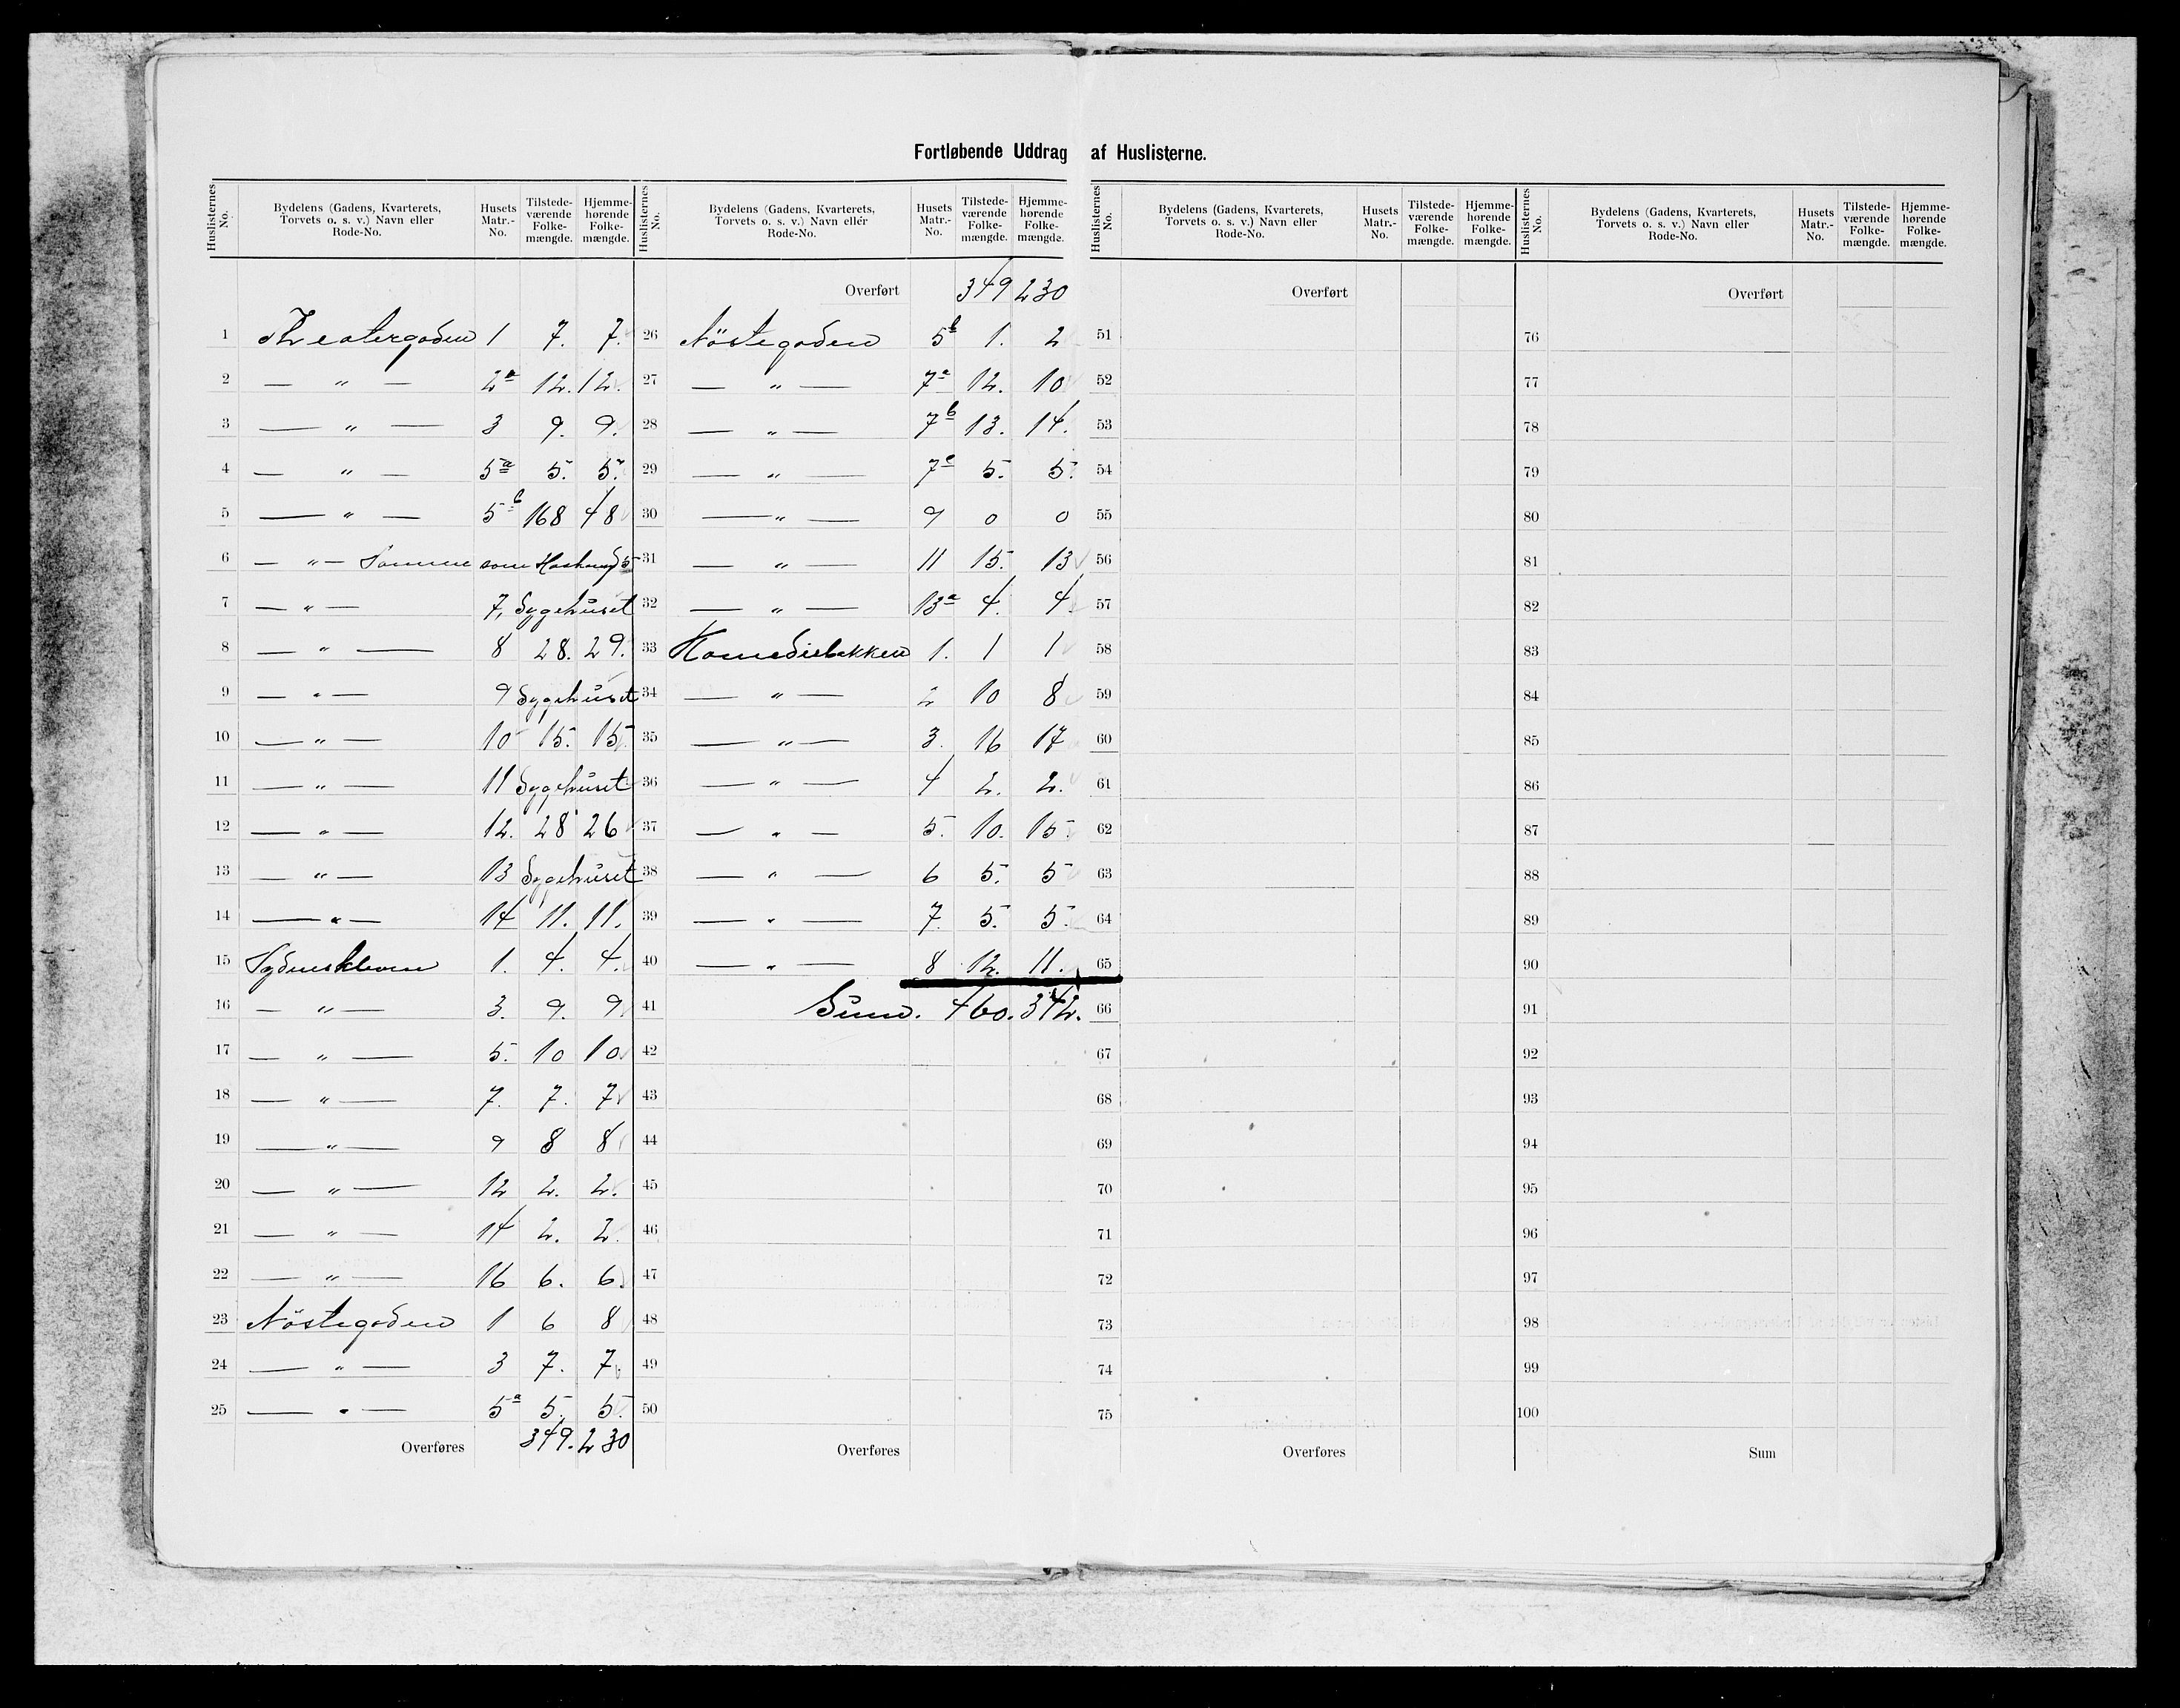 Fortløbende Uddrag af Huslisterne.
Huslisternes No. | Bydelens (Gadens, Kvarterets, Torvets o. s. v.) Navn eller Rode-No. | Husets Matr.-No. | Tilstedeværende Folkemængde. | Hjemmehørende Folkemængde.
1 Theatergaden 1 7. 7.
2 — " — 2a 12. 12.
3 — " — 3 9. 9.
4 — " — 5a 5. 5.
5 — " — 5b 168 48
6 — " — Samme som
7 — " — 7, Sygehuset
8 — " — 8 28. 29.
9 — " — 9 Sygehuset
10 — " — 10 15. 15.
11 — " — 11 Sygehuset
12 — " — 12. 28 26
13 — " — 13 Sygehuset
14 — " — 14 11. 11.
15 Sydneskleven 1. 4. 4.
16 — " — 3. 9. 9.
17 — " — 5. 10 10
18 — " — 7. 7. 7
19 — " — 9 8 8
20 — " — 12 2. 2.
21 — " — 14 2. 2.
22 — " — 16 6. 6.
23 Nöstegaden 1 6 8
24 — " — 3 7. 7.
25 — " — 5a 5. 5.
Overføres 349. 230
Huslisternes No. | Bydelens (Gadens, Kvarterets, Torvets o. s. v.) Navn eller Rode-No. | Husets Matr.-No. | Tilstedeværende Folkemængde. | Hjemmehørende Folkemængde.
Overført 349 230
26 Nöstegaden 5b 1. 2
27 — " — 7a 12. 10
28 — " — 7b 13. 14.
29 — " — 7c 5. 5.
30 — " — 9 0 0
31 — " — 11 15. 13
32 — " — 13a 4. 4.
33 Komediebakken 1. 1 1
34 — " — 2 10 8
35 — " — 3. 16 17
36 — " — 4 2. 2.
37 — " — 5. 10. 15.
38 — " — 6 5. 5
39 — " — 7. 5. 5.
40 — " — 8 12. 11.
41 Sum. 460. 342.
42
43
44
45
46
47
48
49
50
Overføres
Huslisternes No. | Bydelens (Gadens, Kvarterets, Torvets o. s. v.) Navn eller Rode-No. | Husets Matr.-No. | Tilstedeværende Folkemængde. | Hjemmehørende Folkemængde.
Overført
51
52
53
54
55
56
57
58
59
60
61
62
63
64
65
66
67
68
69
70
71
72
73
74
75
Overføres
Huslisternes No. | Bydelens (Gadens, Kvarterets, Torvets o. s. v.) Navn eller Rode-No. | Husets Matr.-No. | Tilstedeværende Folkemængde. | Hjemmehørende Folkemængde.
Overført
76
77
78
79
80
81
82
83
84
85
86
87
88
89
90
91
92
93
94
95
96
97
98
99
100
Sum